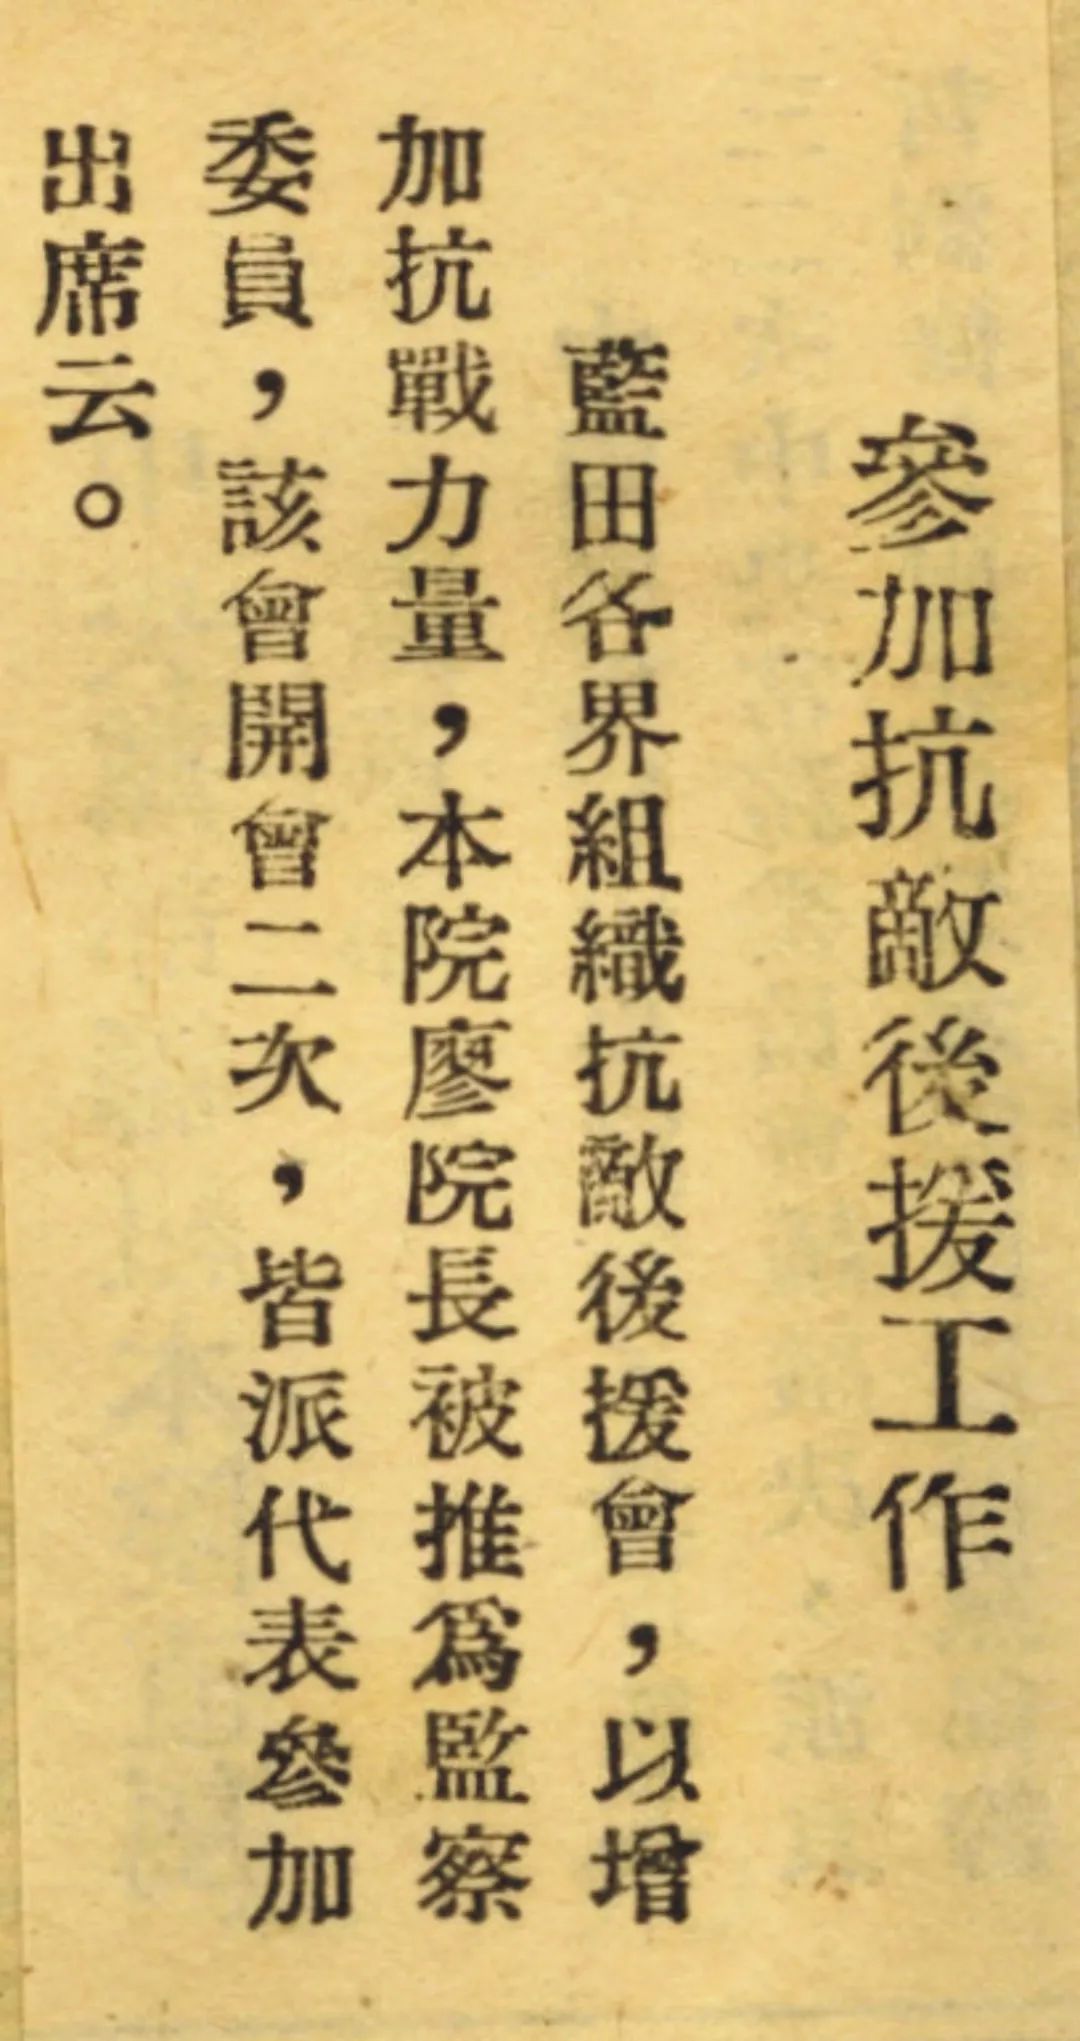 參加抗敵後援工作
藍田各界組織抗敵後援會，以增
加抗戰力量，本院廖院長被推爲監察
委員，該會開會二次，皆派代表參加
出席云。